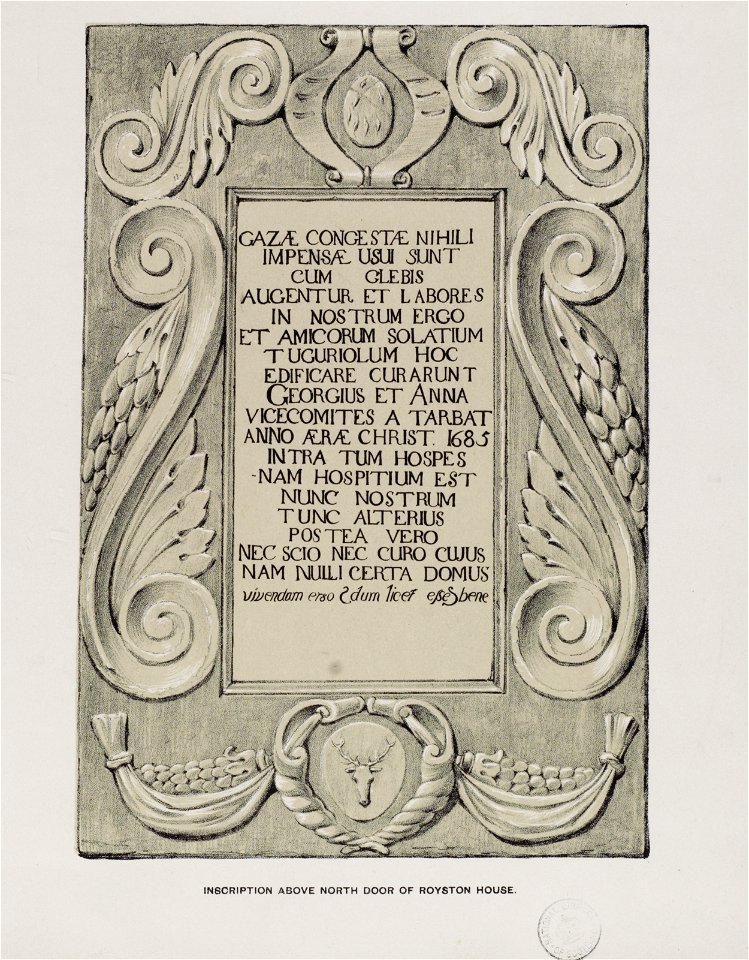 GAZÆ CONGESTÆ NIHILI
IMPENSÆ USUI SUNT
CUM GLEBIS
AUGENTUR ET LABORES
IN NOSTRUM ERGO
ET AMICORUM SOLATIUM
TUGURIOLUM HOC
EDIFICARE CURARUNT
GEORGIUS ET ANNA
VICECOMITES A TARBAT
ANNO ÆRÆ CHRIST. 1685
INTRA TUM HOSPES
-NAM HOSPITIUM EST
NUNC NOSTRUM
TUNC ALTERIUS
POSTEA VERO
NEC SCIO NEC CURO CUJUS
NAM NULLI CERTA DOMUS
vivendum ergo dum licet esse bene
INSCRIPTION ABOVE NORTH DOOR OF ROYSTON HOUSE.